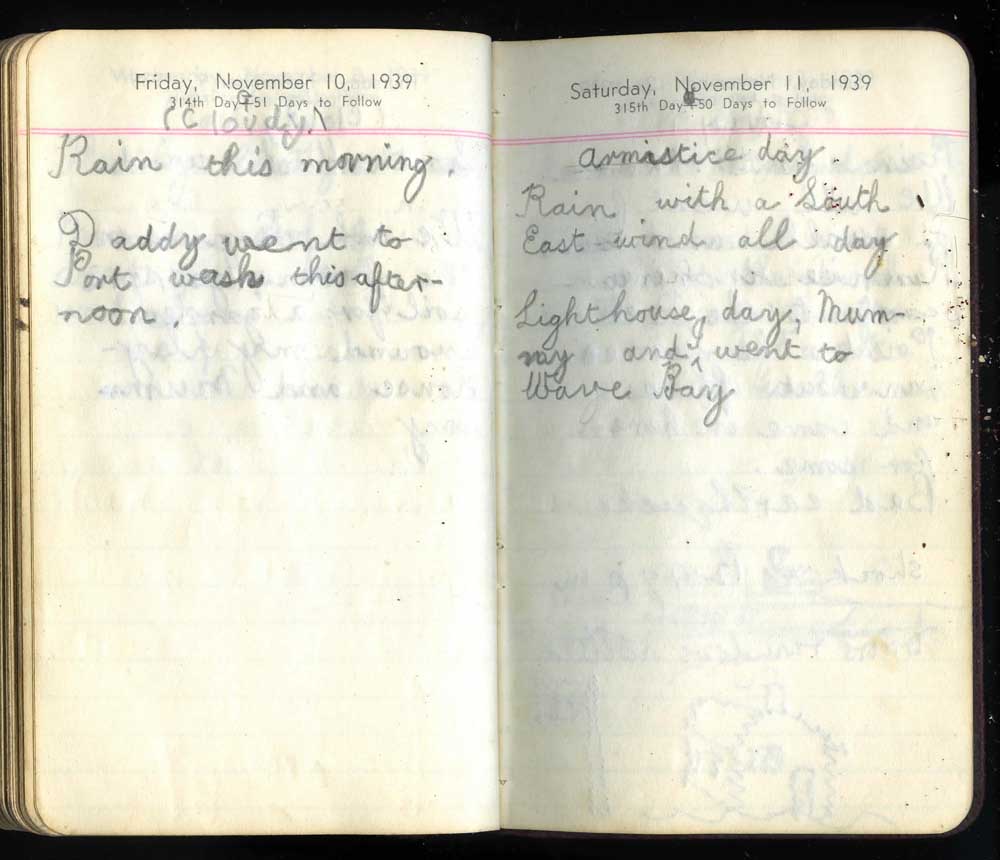 Friday, November 10, 1939
314th Day—51 Days to Follow
(Cloudy)
Rain this morning.
Daddy went to
Port wash this after-
noon.
Saturday, November 11, 1939
315th Day—50 Days to Follow
Armistice day.
Rain with a South
East wind all day
Lighthouse, day, Mum-
my and ^ went to
Wave Bay